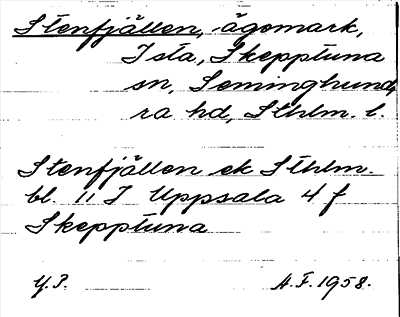 Stenfjällen, ägomark,
Ista, Skepptuna
sn, Seminghund,
ra hd, Sthlm. l.
Stenfjällen ek Sthlm.
bl. 11 I Uppsala 4 f
Skepptuna
Y.P. A.F. 1958.